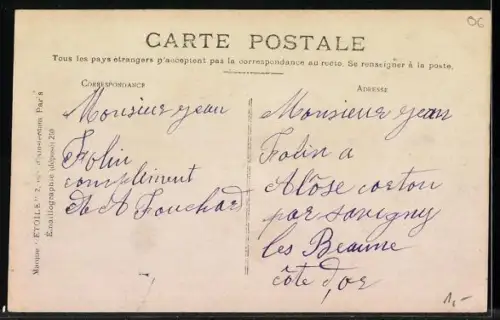 CARTE POSTALE
Tous les pays étrangers n'acceptent pas la correspondance au recto. Se renseigner à la poste.
CORRESPONDANCE
Monsieur jean
Folin
complément
A Fouchard
ADRESSE
Monsieur jean
Folin a
Alôse corton
par savigny
les Beaune
côte d'or
Marque "ETOILE" 2, rue d'Amsterdam Paris
Emaillographie (déposé) 250
06
1,-